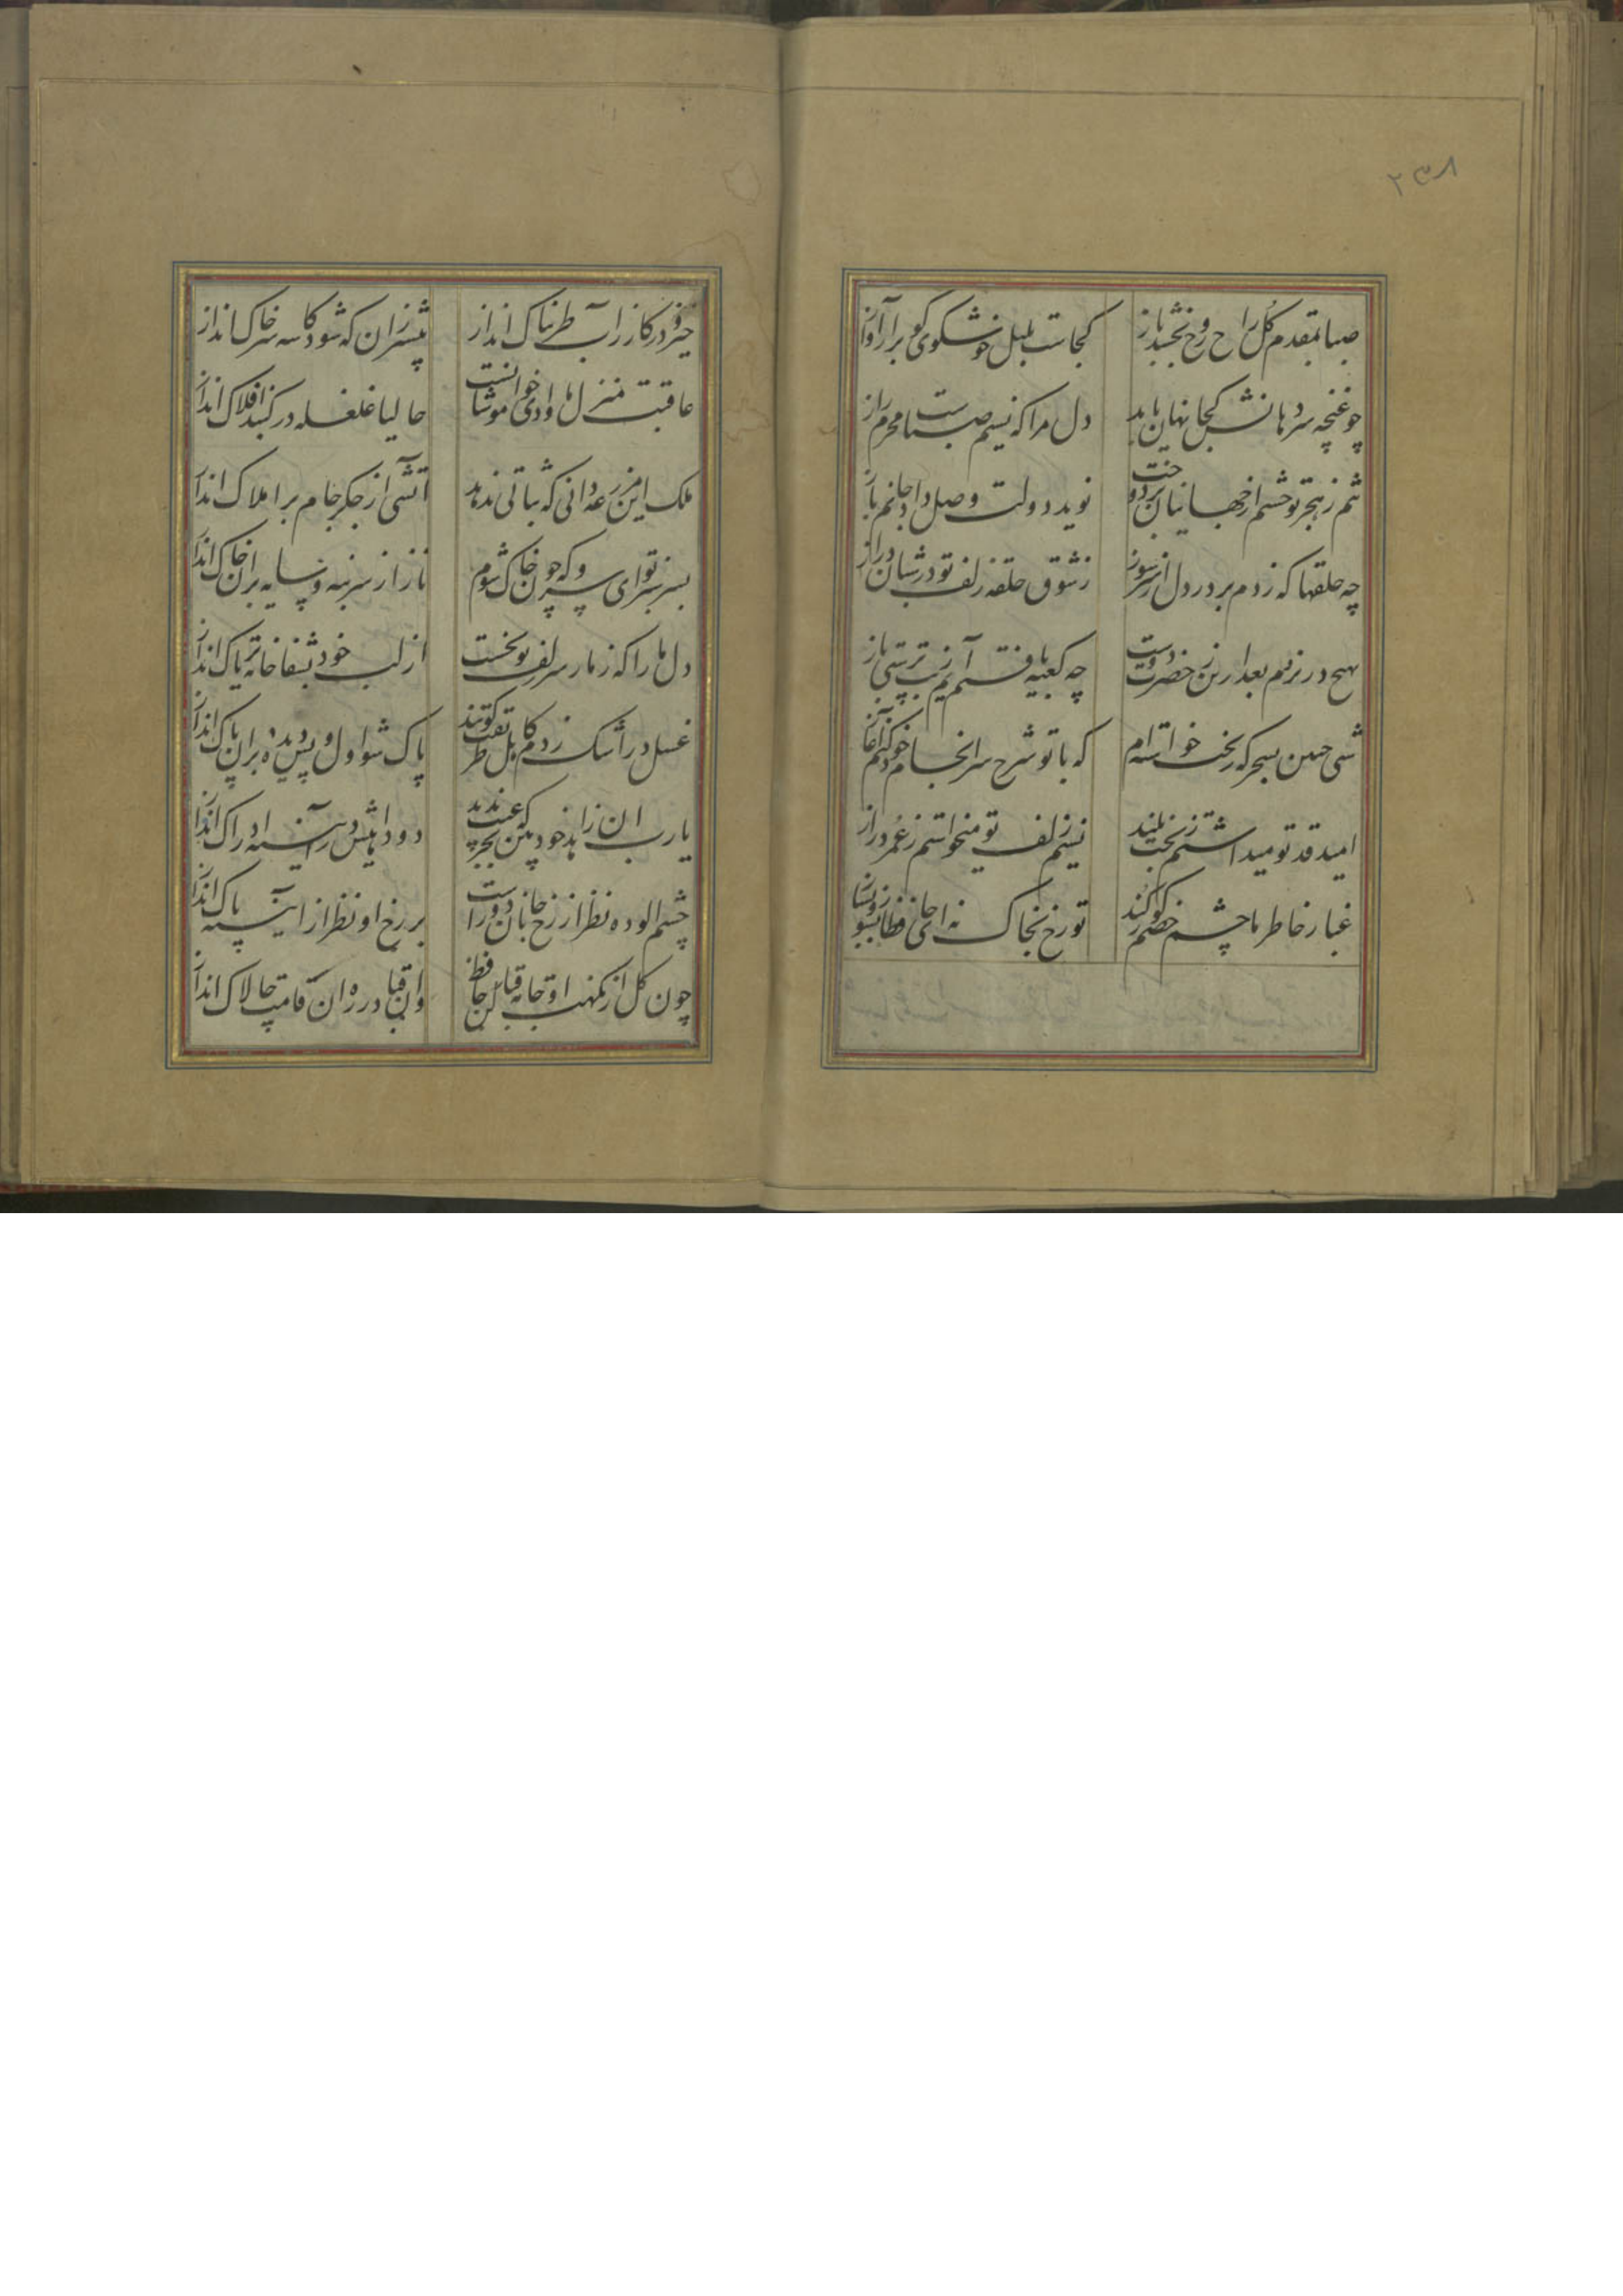 ۲۳۸
صبا بمقدم گل راح روح بخشد باز
کجاست بلبل خوشگوی گو برار آواز
چو غنچه سر دهانش کجا نهان ماند
دل مرا که نسیم صباست محرم راز
شم ز هجر تو چشم از جهانیان بردوخت
نوید دولت وصل تو داد جانم باز
چه حلقها که زدم بر در دل از سر سوز
ز شوق حلقه زلف تو در شبان دراز
بهیچ در نروم بعد ازین ز حضرت دوست
چو کعبه یافتم آیم ز بت پرستی باز
شبی چنین بسحر گه ز بخت خواسته‌ام
که با تو شرح سرانجام خود کنم آغاز
امید قد تو میداشتم ز بخت بلند
نسیم زلف تو میخواستم ز عمر دراز
غبار خاطر ما چشم خصم کور کند
تو رخ بخاک نه ای حافظا بسوز و بساز
خیز و در کا زر آب طربناک انداز
پیشتر زان که شود کاسه سر خاک انداز
عاقبت منزل ما وادی خاموشانست
حالیا غلغله در گنبد افلاک انداز
ملک این مزرعه دانی که ثباتی ندهد
آتشی از جگر جام بر املاک انداز
بسر سبز تو ای سرو که چون خاک شوم
ناز از سر بنه و سایه بران خاک انداز
دل ما را که ز مار سر زلف تو بخست
از لب خود بشفاخانه تریاک انداز
غسل در اشک زدم کاهل طریقت گویند
پاک شو اول و پس دیده بران پاک انداز
یا رب ان زاهد خودبین که بجز عیب ندید
دود آهیش در آیینه ادراک انداز
چشم الوده نظر از رخ جانان دورست
بر رخ او نظر از اینه پاک انداز
چون گل از نکهت او جامه قبا کن حافظ
وان قبا در ره ان قامت چالاک انداز